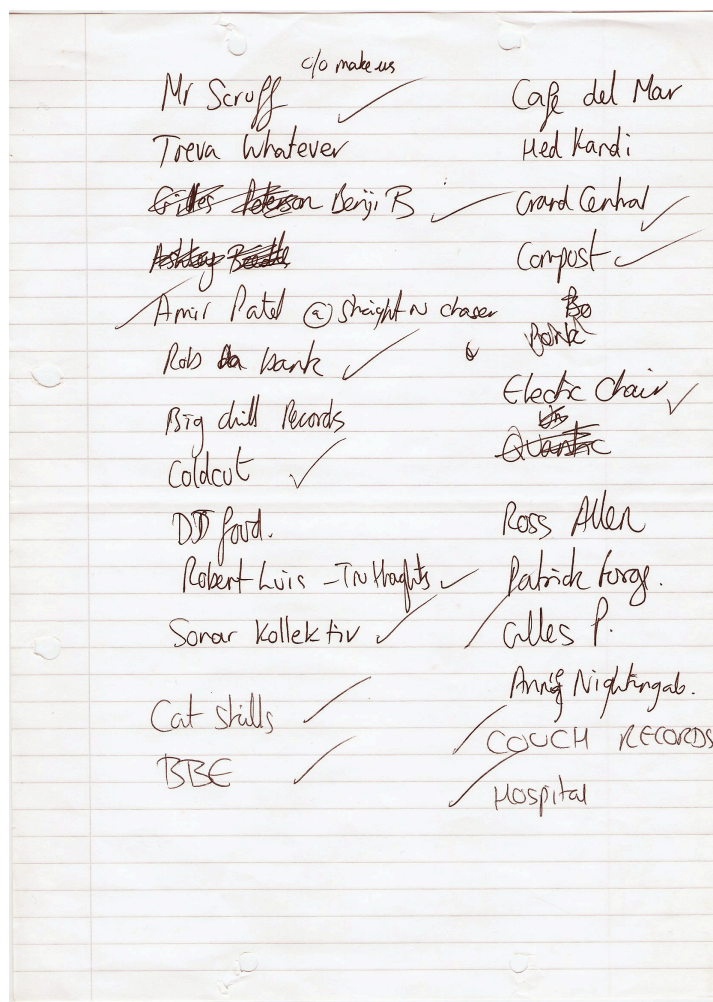 c/o make us
Mr Scruff
Treva Whatever
Gilles Peterson Benji B
Ashley Beedle
Amir Patel @ Straight N chaser
Rob da bank
Big chill Records
Coldcut
DJ food.
Robert Luis - Tru thoughts
Sonar Kollektiv
Cat Skills
BBE
Cafe del Mar
Hed Kandi
Grand Central
Compost
Bo
Bonk
Electic Chair
Quantic
Ross Allen
Patrick Forge.
Gilles P.
Annie Nightingale.
COUCH RECORDS
Hospital